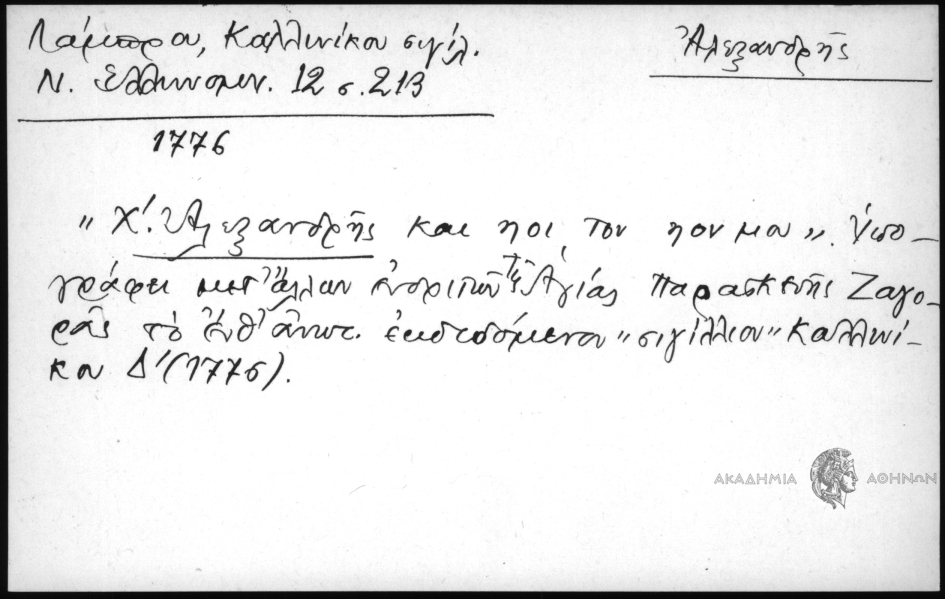 Λάμπρου, Καλλινίκου σιγίλ.
Ν. Ελληνομν. 12 σ. 213
Ἀλεξανδρῆς
1776
„ Χ΄: Ἀλεξανδρῆς και ηοι τον ηον μου „. Ὑπο-
γράφει μετ' ἄλλων ἐνοριτῶν τῆς Ἁγίας Παρασκευῆς Ζαγο-
ρᾶς τὸ ἔνθ' ἄνωτ. ἐκδιδόμενον „σιγίλλιον" Καλλινί-
κου Δ΄ (1776).
ΑΚΑΔΗΜΙΑ ΑΘΗΝΩΝ